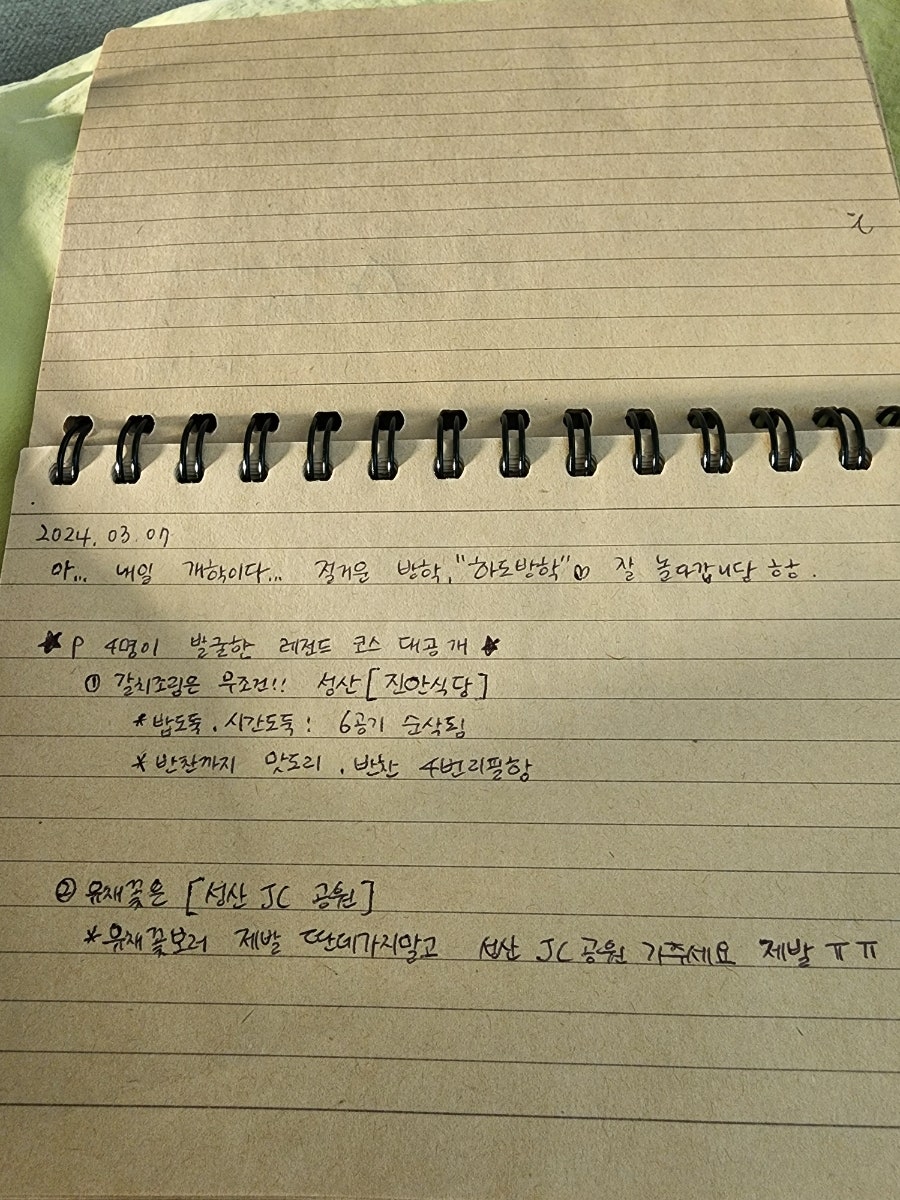 2024. 03. 07
아... 내일 개학이다... 즐거운 방학, "하도방학" 잘 놀다갑니담 하핳.
★ P 4명이 발굴한 레전드 코스 대공개 ★
① 갈치조림은 무조건!! 성산 [진안식당]
* 밥도둑. 시간도둑! 6공기 순삭됨
* 반찬까지 맛도리. 반찬 4번리필함
② 유채꽃은 [성산 JC 공원]
* 유채꽃보러 제발 딴데가지말고 성산 JC 공원 가주세요 제발 ㅠㅠ